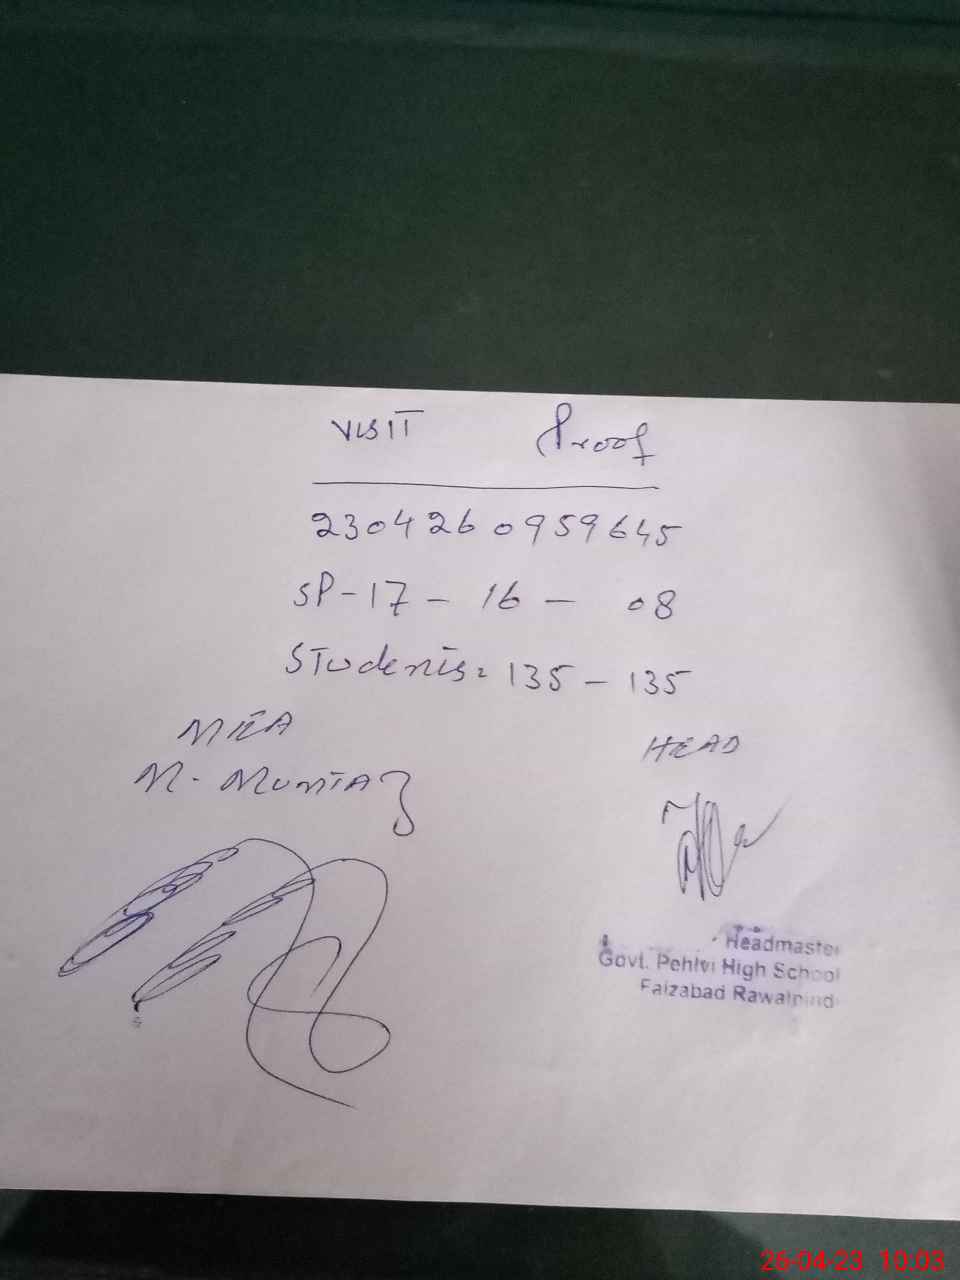 VISIT Proof
230426 0959645
SP-17-16-08
Students: 135-135
MEA
M. MUMTAZ
HEAD
Headmaster
Govt. Pehlvi High School
Faizabad Rawalpindi
26-04-23 10:03